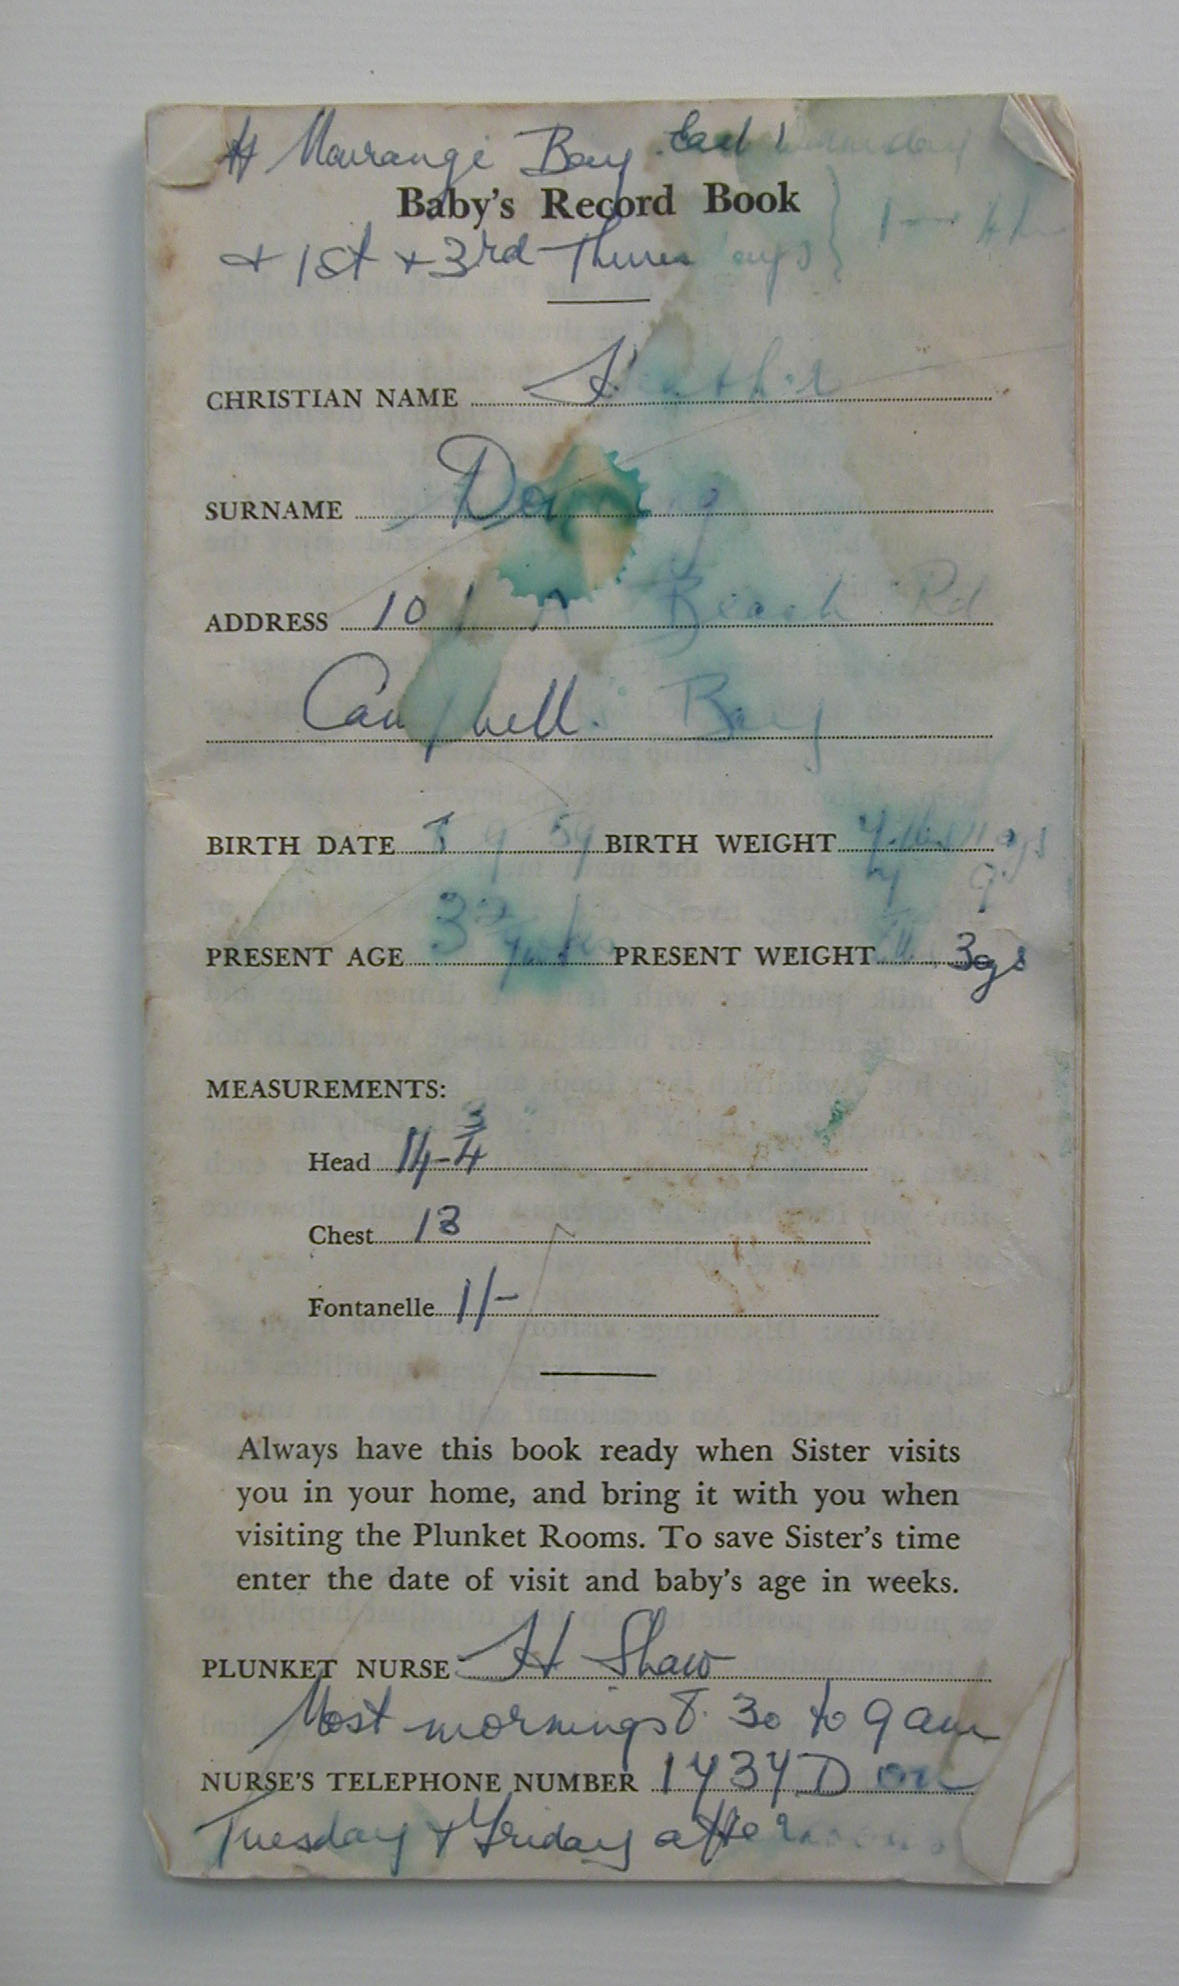 Mairangi Bay
Baby's Record Book
+ 1st + 3rd
CHRISTIAN NAME Heather
SURNAME
ADDRESS Beach Rd
Campbell's Bay
BIRTH DATE 9 59 BIRTH WEIGHT
PRESENT AGE PRESENT WEIGHT 3ozs
MEASUREMENTS:
Head 14-3/4
Chest 13
Fontanelle 1/-
Always have this book ready when Sister visits
you in your home, and bring it with you when
visiting the Plunket Rooms. To save Sister's time
enter the date of visit and baby's age in weeks.
PLUNKET NURSE H Shaw
Most mornings 8.30 to 9 am
NURSE'S TELEPHONE NUMBER on
Tuesday + Friday afternoons.